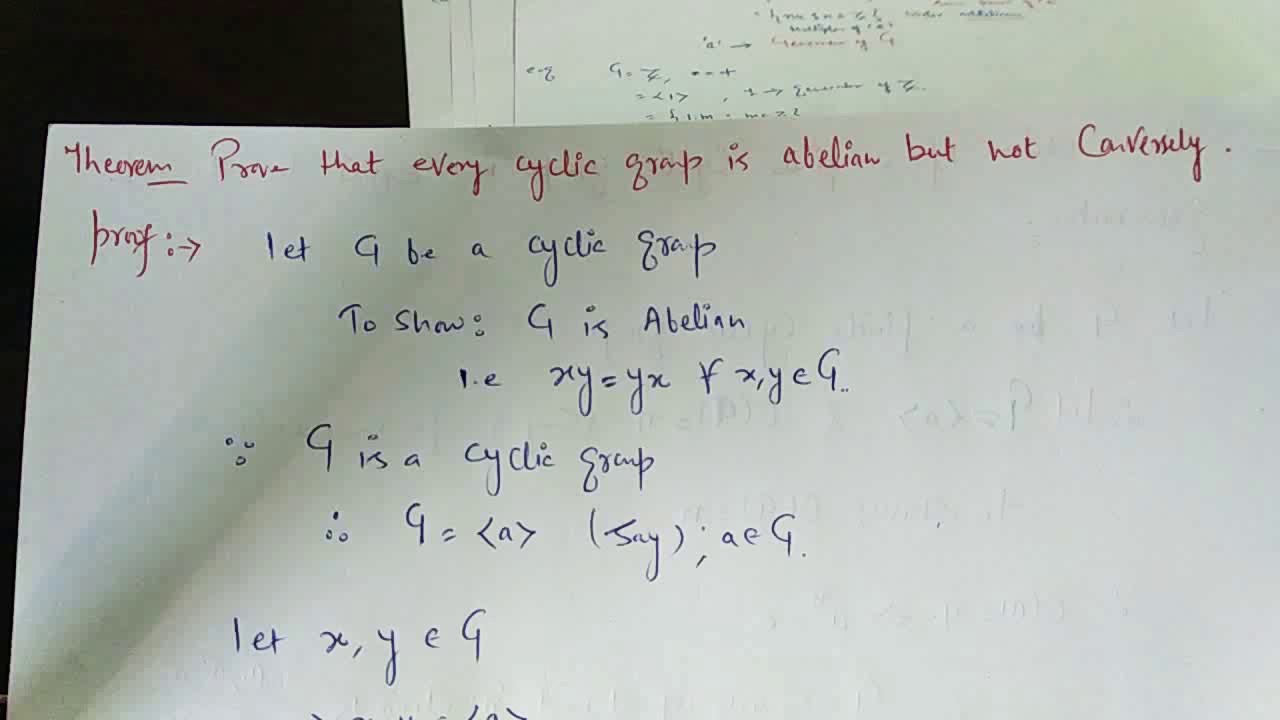 'a' → Generator of G
e.g G = Z, * = +
= <1> , 1 → Generator of Z.
Theorem Prove that every cyclic group is abelian but not Conversely.
Proof :→ let G be a cyclic group
To show: G is Abelian
i.e xy = yx ∀ x, y ∈ G.
∵ G is a cyclic group
∴ G = <a> (Say) ; a ∈ G.
let x, y ∈ G